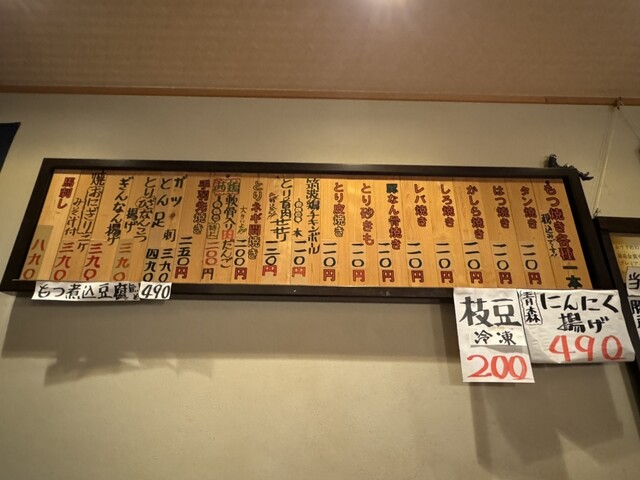 もつ焼き各種一本
タン焼き 一二〇円
はつ焼き 一二〇円
かしら焼き 一二〇円
しろ焼き 一二〇円
レバ焼き 一二〇円
豚なん骨焼き 一二〇円
とり砂きも 一二〇円
とり皮焼き 一二〇円
筑波鶏チキンボール 一二〇円
とり首肉
一二〇円
とりネギ間焼き
二〇〇円
鶏軟骨入り
だんご
手羽焼き
二〇〇円
ガツ刺 二五〇円
とん足 三九〇
とりひざなんこつ
揚げ
四九〇
ぎんなん揚げ 三九〇
焼おにぎり二ケ
みそ汁付
三九〇
馬刺し 八九〇
もつ煮込豆腐 490
枝豆
冷凍
200
青森
にんにく
揚げ
490